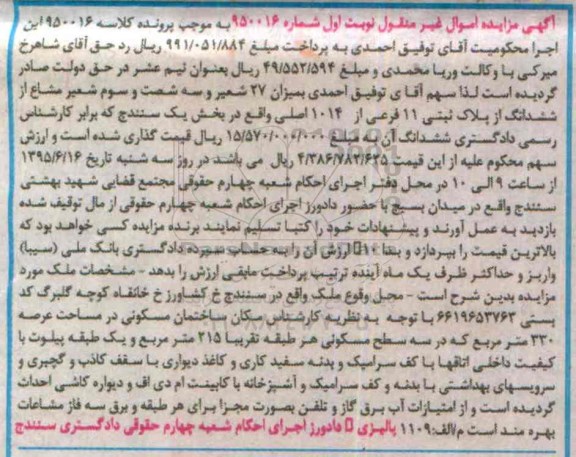 آگهی مزایده اموال غیر منقول نوبت اول شماره ۹۵۰۰۱۶ به موجب پرونده کلاسه ۹۵۰۰۱۶ این
اجرا محکومیت آقای توفیق احمدی به پرداخت مبلغ ۹۹۱/۰۵۱/۸۸۴ ریال رد حق آقای شاهرخ
میرکی با وکالت وریا محمدی و مبلغ ۴۹/۵۵۲/۵۹۴ ریال بعنوان نیم عشر در حق دولت صادر
گردیده است لذا سهم آقا ی توفیق احمدی بمیزان ۲۷ شعیر و سه شصت و سوم شعیر مشاع از
ششدانگ از پلاک ثبتی ۱۱ فرعی از ۱۰۱۴ اصلی واقع در بخش یک سنندج که برابر کارشناس
رسمی دادگستری ششدانگ آن به مبلغ ۱۵/۵۷۰/۰۰۰/۰۰۰ ریال قیمت گذاری شده است و ارزش
سهم محکوم علیه از این قیمت ۴/۳۸۶/۷۸۲/۶۲۵ ریال می باشد در روز سه شنبه تاریخ ۱۳۹۵/۶/۱۶
از ساعت ۹ الی ۱۰ در محل دفتر اجرای احکام شعبه چهارم حقوقی مجتمع قضایی شهید بهشتی
سنندج واقع در میدان بسیج با حضور دادورز اجرای احکام شعبه چهارم حقوقی از مال توقیف شده
بازدید به عمل آورند و پیشنهادات خود را کتبا تسلیم نمایند برنده مزایده کسی خواهد بود که
بالاترین قیمت را بپردازد و بقتا ۱۰ ارزش آن را به حساب سپرده دادگستری بانک ملی (سیبا)
واریز و حداکثر ظرف یک ماه آینده ترتیب پرداخت مابقی ارزش را بدهد - مشخصات ملک مورد
مزایده بدین شرح است - محل وقوع ملک واقع در سنندج خ کشاورز خ خانقاه کوچه گلبرگ کد
پستی ۶۶۱۹۶۵۳۷۶۳ با توجه به نظریه کارشناس سکان ساختمان مسکونی در مساحت عرصه
۳۳۰ متر مربع که در سه سطح مسکونی هر طبقه تقریبا ۲۱۵ متر مربع و یک طبقه پیلوت با
کیفیت داخلی اتاقها با کف سرامیک و بدنه سفید کاری و کاغذ دیواری با سقف کاذب و گچبری و
سرویسهای بهداشتی با بدنه و کف سرامیک و آشپزخانه با کابینت ام دی اف و دیواره کاشی احداث
گردیده است و از امتیازات آب برق گاز و تلفن بصورت مجزا برای هر طبقه و برق سه فاز مشاعات
بهره مند است م/الف:۱۱۰۹ پالیزی دادورز اجرای احکام شعبه چهارم حقوقی دادگستری سنندج